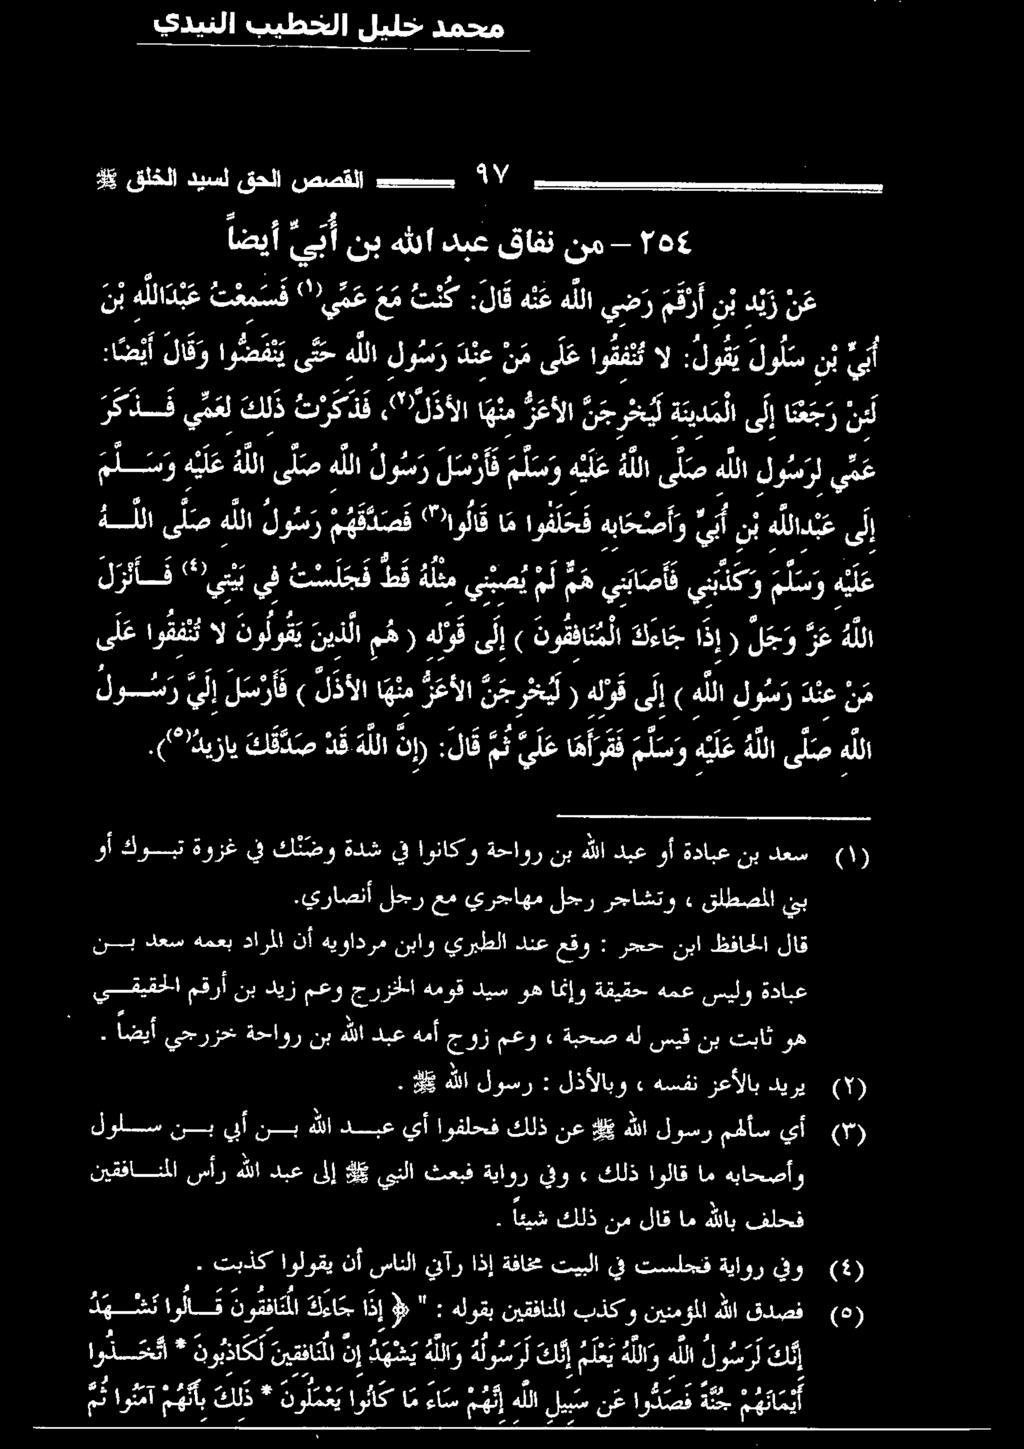 محمد خليل الخطيب النيدي
٩٧ القصص الحق لسيد الخلق ﷺ
٢٥٤ – من نفاق عبد الله بن أُبَيٍّ أيضاً
عَنْ زَيْدِ بْنِ أَرْقَمَ رَضِيَ اللَّهِ عَنْه قَالَ: كُنْتُ مَعَ عَمِّي(١) فَسَمِعْتُ عَبْدَاللَّهِ بْنَ
أُبَيٍّ بْنِ سَلُولَ يَقُولُ: لا تُنْفِقُوا عَلَى مَنْ عِنْدَ رَسُولِ اللَّهِ حَتَّى يَنْفَضُّوا وَقَالَ أَيْضًا:
لَئِنْ رَجَعْنَا إِلَى الْمَدِينَةِ لَيُخْرِجَنَّ الأعَزُّ مِنْهَا الأذَلَّ(٢)، فَذَكَرْتُ ذَلِكَ لِعَمِّي فَـذَكَرَ
عَمِّي لِرَسُولِ اللَّهِ صَلَّى اللَّهُ عَلَيْهِ وَسَلَّمَ فَأَرْسَلَ رَسُولُ اللَّهِ صَلَّى اللَّهُ عَلَيْهِ وَسَـلَّمَ
إِلَى عَبْدِاللَّهِ بْنِ أُبَيٍّ وَأَصْحَابِهِ فَحَلَفُوا مَا قَالُوا(٣) فَصَدَّقَهُمْ رَسُولُ اللَّهِ صَلَّى اللَّـهُ
عَلَيْهِ وَسَلَّمَ وَكَذَّبَنِي فَأَصَابَنِي هَمٌّ لَمْ يُصِبْنِي مِثْلُهُ قَطُّ فَجَلَسْتُ فِي بَيْتِي(٤) فَـأَنْزَلَ
اللَّهُ عَزَّ وَجَلَّ ( إِذَا جَاءَكَ الْمُنَافِقُونَ ) إِلَى قَوْلِهِ ( هُمِ الَّذِينَ يَقُولُونَ لا تُنْفِقُوا عَلَى
مَنْ عِنْدَ رَسُولِ اللَّهِ ) إِلَى قَوْلِهِ ( لَيُخْرِجَنَّ الأعَزُّ مِنْهَا الأذَلَّ ) فَأَرْسَلَ إِلَيَّ رَسُـولُ
اللَّهِ صَلَّى اللَّهُ عَلَيْهِ وَسَلَّمَ فَقَرَأَهَا عَلَيَّ ثُمَّ قَالَ: (إِنَّ اللَّهَ قَدْ صَدَّقَكَ يازيدُ(٥)).
(١) سعد بن عبادة أو عبد الله بن رواحة وكانوا في شدة وضَنْك في غزوة تبـوك أو
بني المصطلق ، وتشاجر رجل مهاجري مع رجل أنصاري.
قال الحافظ ابن حجر : وقع عند الطبري وابن مردوايه أن المراد بعمه سعد بـن
عبادة وليس عمه حقيقة وإنما هو سيد قومه الخزرج وعم زيد بن أرقم الحقيقـي
هو ثابت بن قيس له صحبة ، وعم زوج أمه عبد الله بن رواحة خزرجي أيضاً .
(٢) يريد بالأعز نفسه ، وبالأذل : رسول الله ﷺ .
(٣) أي سألهم رسول الله ﷺ عن ذلك فحلفوا أي عبـد الله بـن أبي بـن سـلول
وأصحابه ما قالوا ذلك ، وفي رواية فبعث النبي ﷺ إلى عبد الله رأس المنـافقين
فحلف بالله ما قال من ذلك شيئاً .
(٤) وفي رواية فجلست في البيت مخافة إذا رآني الناس أن يقولوا كذبت .
(٥) فصدق الله المؤمنين وكذب المنافقين بقوله : " ﴿ إِذَا جَاءَكَ الْمُنَافِقُونَ قَـالُوا نَشْـهَدُ
إِنَّكَ لَرَسُولُ اللَّهِ وَاللَّهُ يَعْلَمُ إِنَّكَ لَرَسُولُهُ وَاللَّهُ يَشْهَدُ إِنَّ الْمُنَافِقِينَ لَكَاذِبُونَ * اتَّخَـذُوا
أَيْمَانَهُمْ جُنَّةً فَصَدُّوا عَن سَبِيلِ اللَّهِ إِنَّهُمْ سَاءَ مَا كَانُوا يَعْمَلُونَ * ذَلِكَ بِأَنَّهُمْ آمَنُوا ثُمَّ